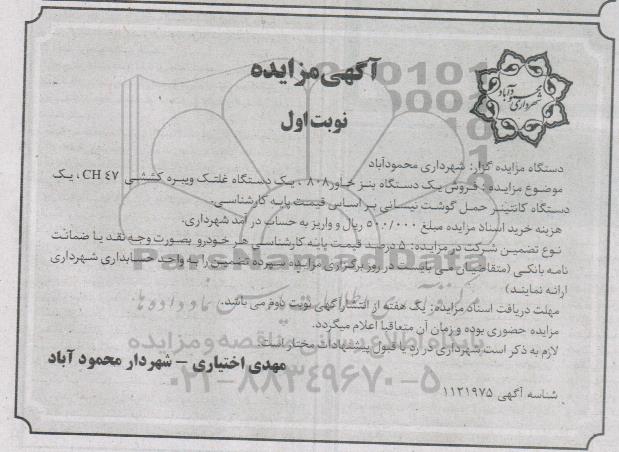 آگهی مزایده
نوبت اول
شهرداری محمودآباد
دستگاه مزایده گزار: شهرداری محمودآباد
موضوع مزایده : فروش یک دستگاه بنز خاور۸۰۸ ، یک دستگاه غلتک ویبره کششی CH ٤٧ ، یک
دستگاه کانتینر حمل گوشت نیسانی بر اساس قیمت پایه کارشناسی.
هزینه خرید اسناد مزایده مبلغ ۵۰۰/۰۰۰ ریال و واریز به حساب در آمد شهرداری.
نوع تضمین شرکت در مزایده: ۵ درصد قیمت پایه کارشناسی هر خودرو بصورت وجه نقد یا ضمانت
نامه بانکی (متقاضیان می بایست در روز برگزاری مزایده سپرده تضمین را به واحد حسابداری شهرداری
ارائه نمایند)
مهلت دریافت اسناد مزایده: یک هفته از انتشار آگهی نوبت دوم می باشد.
مزایده حضوری بوده و زمان آن متعاقبا اعلام میگردد.
لازم به ذکر است شهرداری در رد یا قبول پیشنهادات مختار است.
مهدی اختیاری – شهردار محمود آباد
شناسه آگهی ۱۱۲۱۹۷۵
ParsNamadData
پایگاه اطلاع رسانی مناقصه و مزایده
۰۲۱-۸۸۳۴۹۶۷۰-۵